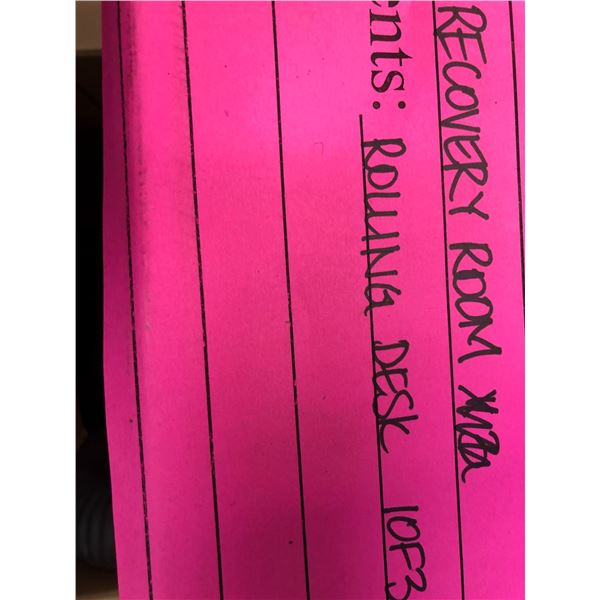 RECOVERY ROOM
ents: ROLLING DESK 1OF3